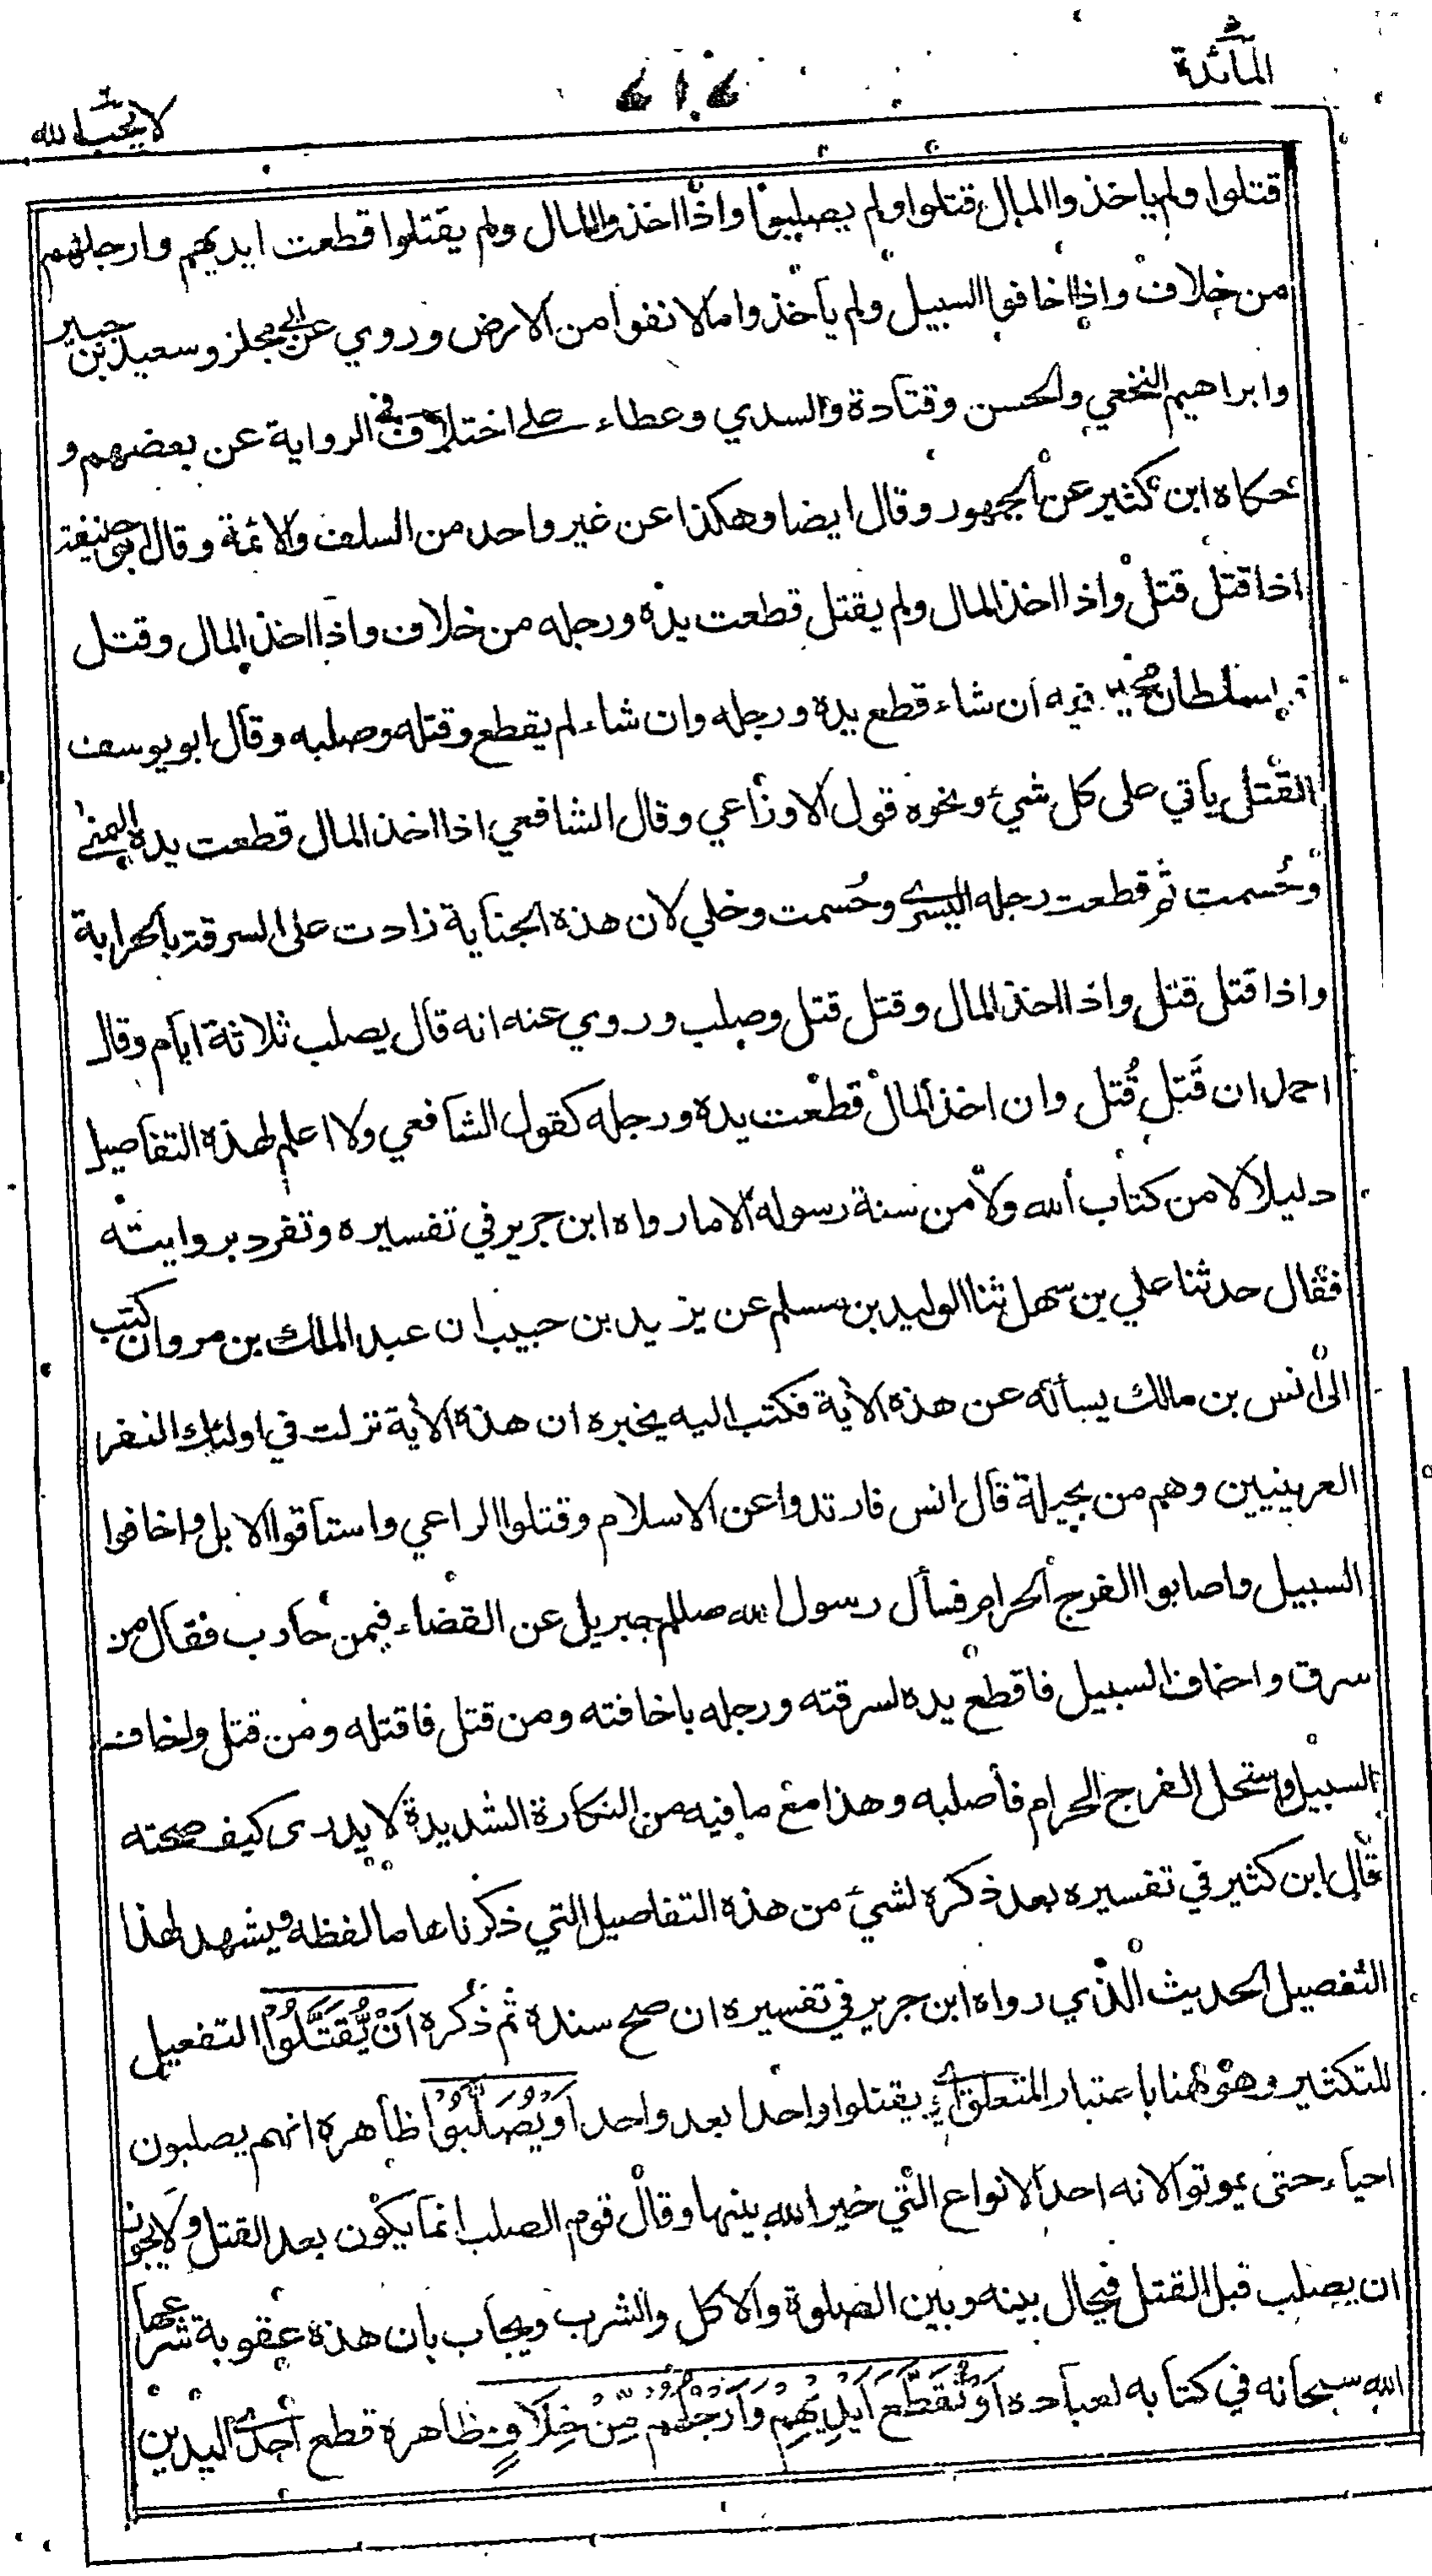 المآئدة
٦١٤
لا يحب الله
قتلوا ولم ياخذوا المال قتلوا ولم يصلبوا واذا اخذوا المال ولم يقتلوا قطعت ايديهم وارجلهم
من خلاف واذا اخافوا السبيل ولم يأخذوا مالا نفوا من الارض وروي عن ابي مجلز وسعيد بن جبير
وابراهيم النخعي والحسن وقتادة والسدي وعطاء على اختلاف في الرواية عن بعضهم و
حكاه ابن كثير عن الجمهور وقال ايضا وهكذا عن غير واحد من السلف والائمة وقال ابو حنيفة
اذا قتل قتل واذا اخذ المال ولم يقتل قطعت يده ورجله من خلاف واذا اخذ المال وقتل
فالسلطان مخير فيه ان شاء قطع يده ورجله وان شاء لم يقطع وقتله وصلبه وقال ابو يوسف
القتل يأتي على كل شيء ونحوه قول الاوزاعي وقال الشافعي اذا اخذ المال قطعت يده اليمنى
وحُسمت ثم قطعت رجله اليسرى وحُسمت وخلي لان هذه الجناية زادت على السرقة بالحرابة
واذا قتل قتل واذا اخذ المال وقتل قتل وصلب وروي عنه انه قال يصلب ثلاثة ايام وقال
احمد ان قَتل قُتل وان اخذ المال قطعت يده ورجله كقول الشافعي ولا اعلم لهذه التفاصيل
دليلا لا من كتاب الله ولا من سنة رسوله الا ما رواه ابن جرير في تفسيره وتفرد بروايته
فقال حدثنا علي بن سهل ثنا الوليد بن مسلم عن يزيد بن حبيب ان عبد الملك بن مروان كتب
الى انس بن مالك يسأله عن هذه الآية فكتب اليه يخبره ان هذه الآية نزلت في اولئك النفر
العرينيين وهم من بجيلة قال انس فارتدوا عن الاسلام وقتلوا الراعي واستاقوا الابل واخافوا
السبيل واصابوا الفرج الحرام فسأل رسول الله صللم جبريل عن القضاء فيمن حارب فقال من
سرق واخاف السبيل فاقطع يده لسرقته ورجله باخافته ومن قتل فاقتله ومن قتل واخاف
السبيل واستحل الفرج الحرام فأصلبه وهذا مع ما فيه من النكارة الشديدة لا يدرى كيف صحته
قال ابن كثير في تفسيره بعد ذكره لشيء من هذه التفاصيل التي ذكرناها ما لفظه ويشهد لهذا
التفصيل الحديث الذي رواه ابن جرير في تفسيره ان صح سنده ثم ذكره اَنْ يُّقَتَّلُوْا التفعيل
للتكثير وهو هنا باعتبار المتعلق اي يقتلوا واحدا بعد واحد اَوْ يُصَلَّبُوْا ظاهره انهم يصلبون
احياء حتى يموتوا لانه احد الانواع التي خير الله بينها وقال قوم الصلب انما يكون بعد القتل ولا يجوز
ان يصلب قبل القتل فيحال بينه وبين الصلوة والاكل والشرب ويجاب بان هذه عقوبة شرعها
الله سبحانه في كتابه لعباده اَوْ تُقَطَّعَ اَيْدِيْهِمْ وَاَرْجُلُهُمْ مِّنْ خِلَافٍ ظاهره قطع احدى اليدين